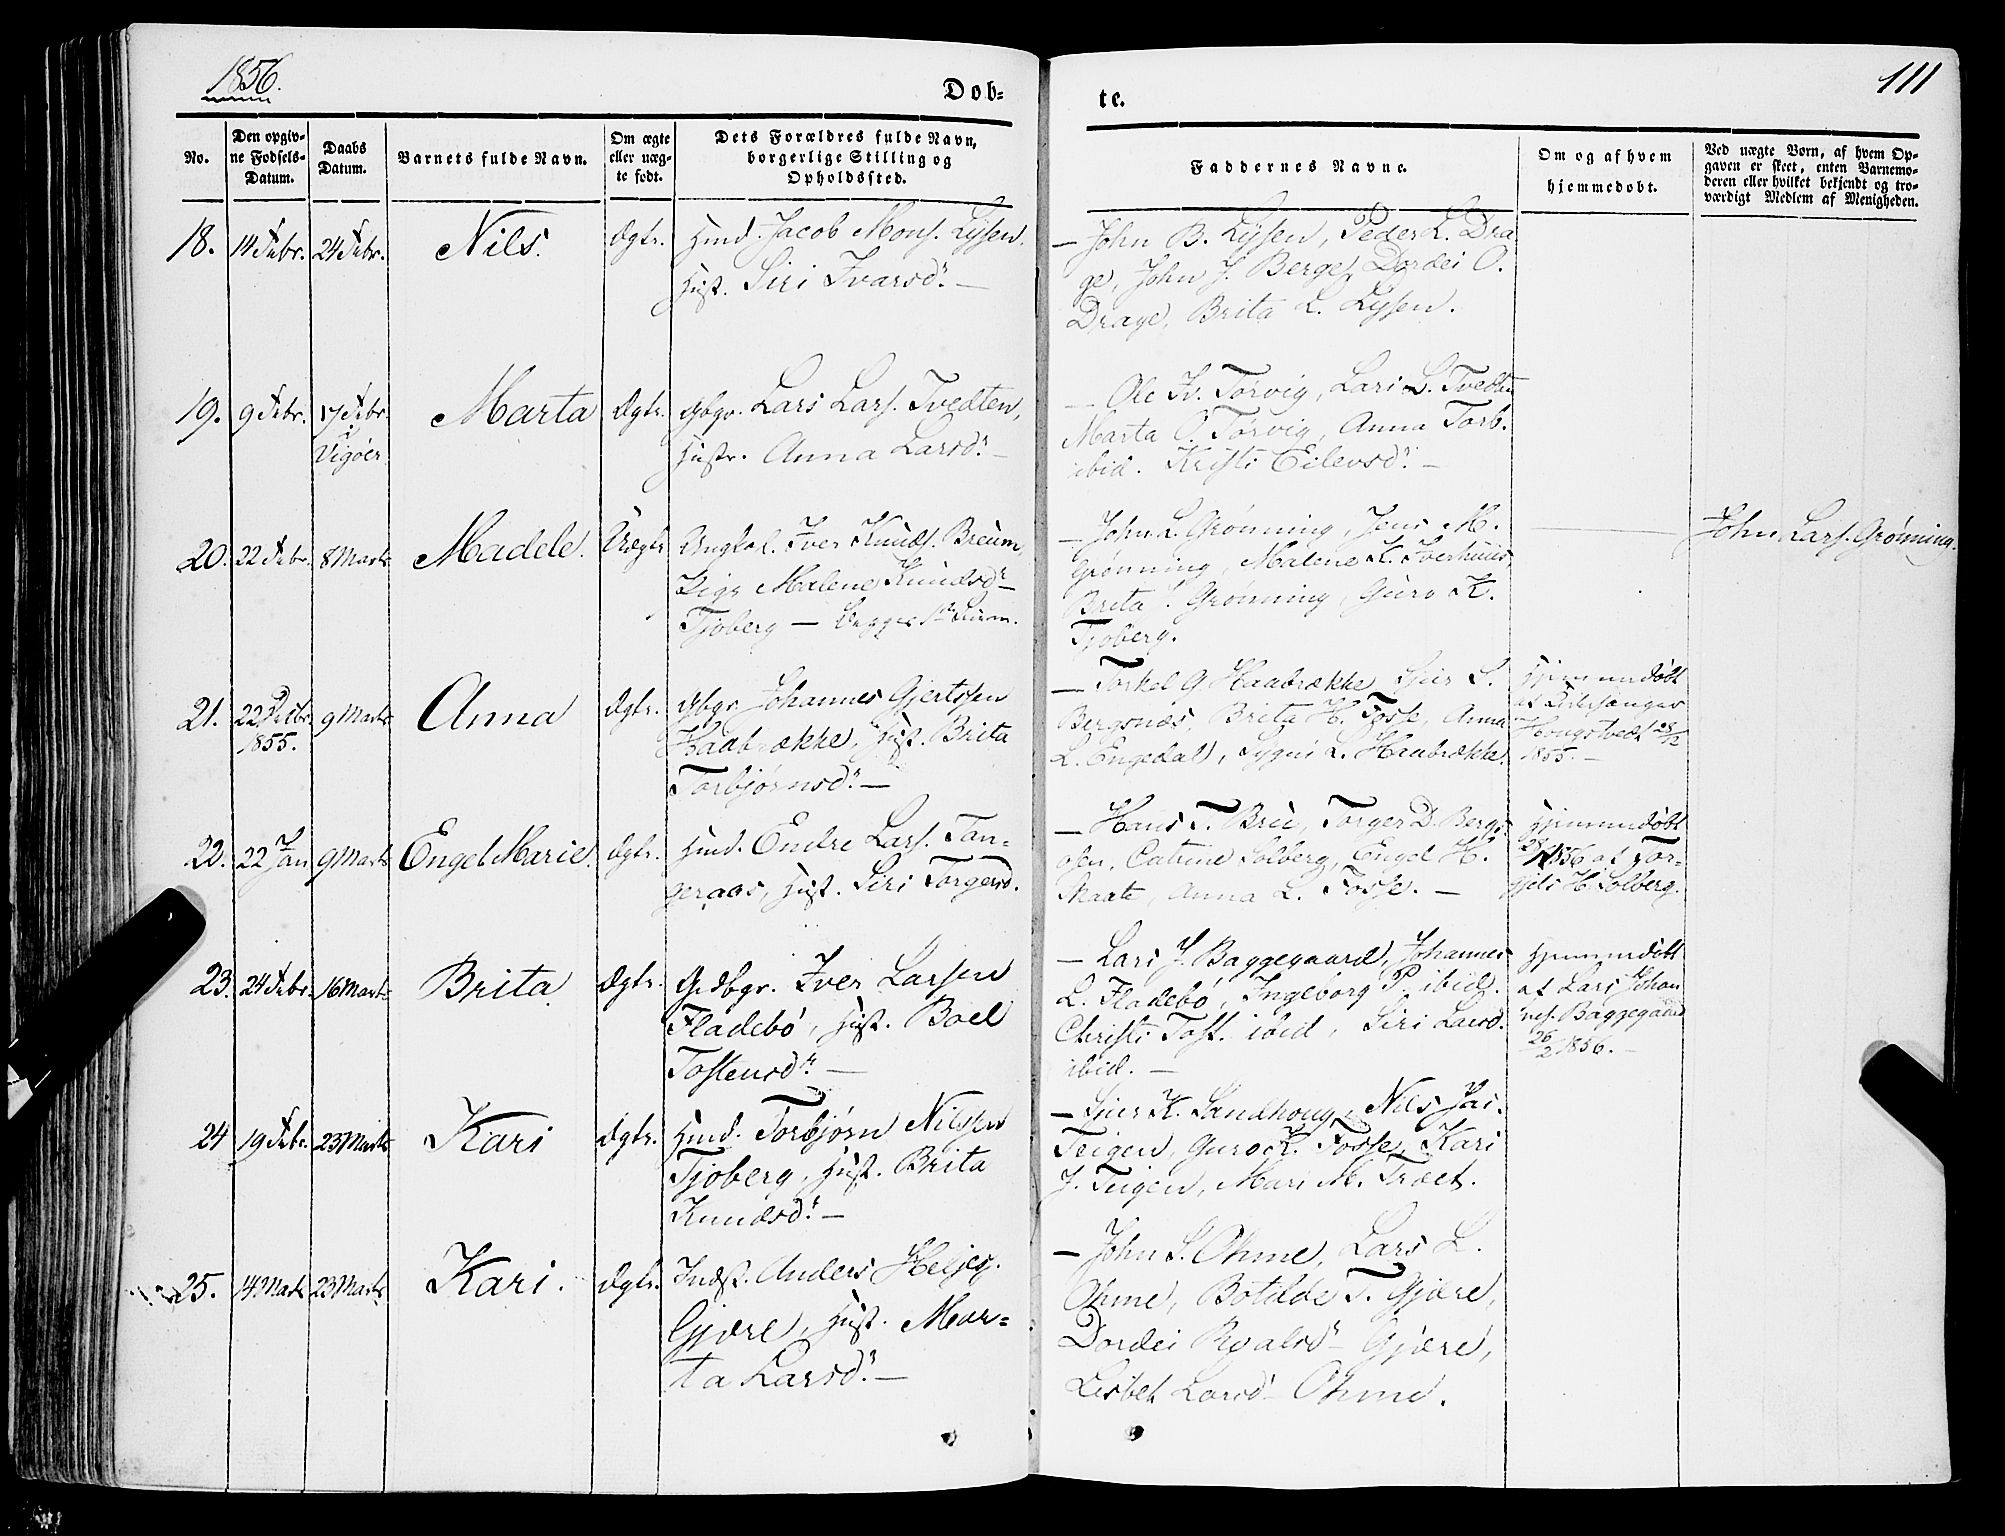 1856.
Døb=
te.
111
No.
Den opgiv=
ne Fødsels=
Datum.
Daabs
Datum.
Barnets fulde Navn.
Om ægte
eller uæg=
te født.
Dets Forældres fulde Navn,
borgerlige Stilling og
Opholdssted.
Faddernes Navne.
Om og af hvem
hjemmedøbt.
Ved uægte Børn, af hvem Op=
gaven er skeet, enten Barnemo=
deren eller hvilket bekjendt og tro=
værdigt Medlem af Menigheden.
18. 14 Febr. 24 Febr. Nils. Ægte. Huusm. Jacob Mons. Lysen,
Hust. Siri Ivarsdr. —
— John B. Lysen, Peder L. Dra
ge, John J. Berge, Dordei O.
Drage, Brita L. Lysen.
19. 9 Febr. 17 Febr. Marta Ægte. Gbgr. Lars Lars. Tvedten,
i
Vigøer
Hustr. Anna Larsdr. —
— Ole Iv. Tørvig, Lars L. Tvedten
Marta O. Tørvig, Anna Torb.
ibid. Kristi Eilevsdr. —
20. 22 Febr. 8 Marts Madele. Uægte Ungkal. Iver Knuds. Breum
Pige Malene Knudsdr —
Tjoberg — Begges
— John L. Grønning, Jens M.
Grønning, Malene K.
Brita Grønning, Guro K.
Tjoberg.
John Lars. Grønning.
21. 22 Decbr. 9 Marts Anna Ægte. Gbgr. Johannes Gjertssen
1855.
Haabrække, Hust. Brita
Torbjørnsdr. —
— Torkel G. Haabrække Sjur S.
Bergsnæs, Brita H. Fosse, Anna
L. Engedal, Sygni L. Haabrække.
Hjemmedøbt
af Kirkesanger
Hougstvedt 28/12
1855. —
22. 22 Jan 9 Marts Engel Marie. Ægte. Huusm. Endre Lars. Tan=
geraas, Hust. Siri Torgersd.
— Hans T. Brue, Torger D. Bergs
osen, Catrine Solberg, Engel H.
Skaate, Anna L. Fosse. —
Hjemmedøbt
1856 af Tor=
gjels H. Solberg.
23. 24 Febr. 16 Marts Brita Ægte. Gdbgr. Iver Larsen
Fladebø, Hust. Boel
Tostensdr. —
— Lars J. Baggegaard, Johannes
L. Fladebø, Ingeborg P. ibid.
Christi Tost. ibid, Siri Larsd.
ibid. —
Hjemmedøbt
af Lars Johan
nes. Baggegaard
26/2 1856. —
24 19 Febr. 23 Marts Kari Ægte. Huusm. Torbjørn Nilssen
Tjoberg, Hust. Brita
Knudsdr. —
— Sjur K. Sandhoug, Nils Jac.
Teigen, Guro K. Fosse, Kari
J. Teigen, Mari M. Træet.
25. 14 Marts 23 Marts Kari. Ægte. Indst. Anders Heljes.
Gjære, Hust. Mar=
ta Larsdr. —
— John S. Ohme, Lars L.
Ohme, Botilde T. Gjære,
Dordei Roalsdr — Gjære,
Lisbet Larsd — Ohme.